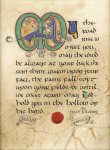 May the
road
rise to
meet you,
may the wind
be always at your back the
sun shine warm upon your
face, the rains fall soft
upon your fields & until
we meet again may God
hold you in the hollow of
his hand.